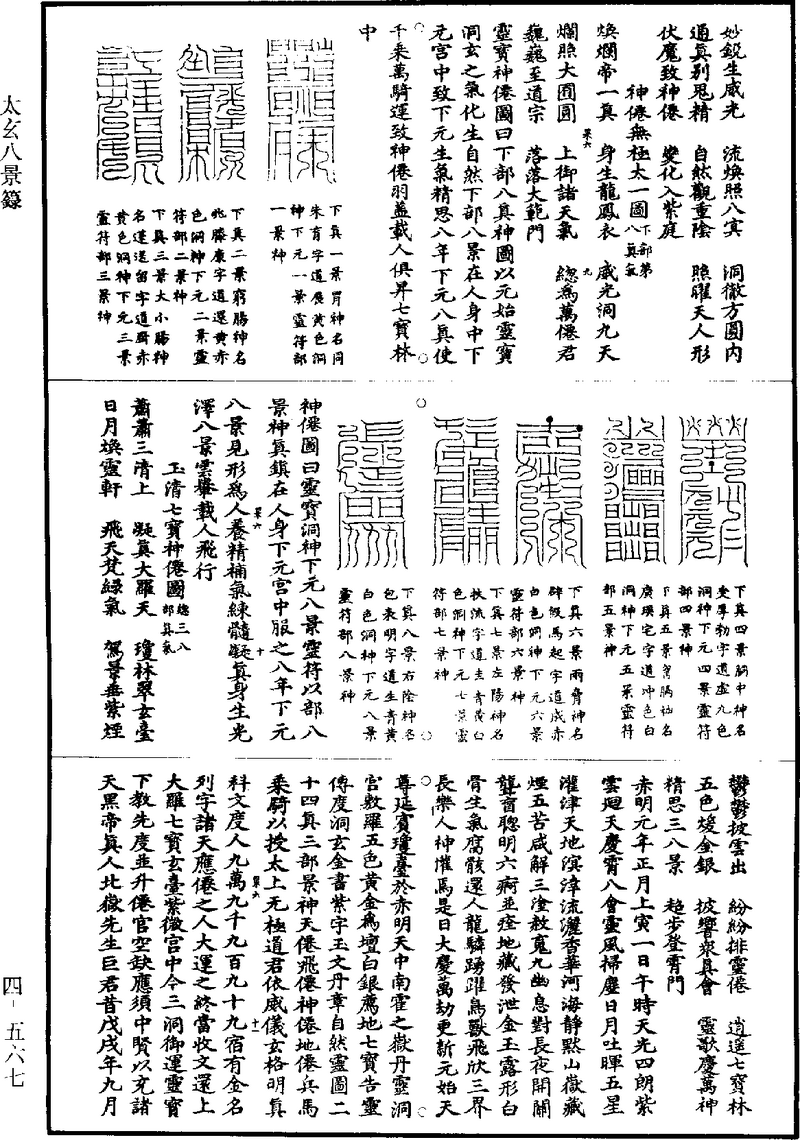 太玄八景籙
四‧五六七
妙銳生威光　流煥照八冥　洞徹方圓內
通真別鬼精　自然觀重陰　照曜天人形
伏魔致神僊　變化入紫庭
神僊無極太一圖下部第八真氣
煥爛帝一真　身生龍鳳衣　威光洞九天
爛照大囿圓　上御諸天氣　總為萬僊君
巍巍至道宗　落落大範門
靈寶神僊圖曰下部八真神圖以元始靈寶
洞玄之氣化生自然下部八景在人身中下
元宮中致下元生氣精思八年下元八真使
千乘萬騎運致神僊羽蓋載人俱昇七寶林
中
下真一景胃神名同
朱育字道展黃色洞
神下元一景靈符部
一景神
下真二景窮腸神名
兆滕康字道還黃赤
色洞神下元二景靈
符部二景神
下真三景大小腸神
名蓬送留字道廚赤
黃色洞神下元三景
靈符部三景神
下真四景胴中神名
受厚勃字道虛九色
洞神下元四景靈符
部四景神
下真五景胷膈神名
廣瑛宅字道沖色白
洞神下元五景靈符
部五景神
下真六景兩脅神名
辟假馬起字道成赤
白色洞神下元六景
靈符部六景神
下真七景左陽神名
扶流字道生青黃白
色洞神下元七景靈
符部七景神
下真八景右陰神名
包表明字道生青黃
白色洞神下元八景
靈符部八景神
神僊圖曰靈寶洞神下元八景靈符以部八
景神真鎮在人身下元宮中服之八年下元
八景見形為人養精補氣練髓凝真身生光
澤八景雲轝載人飛行
玉清七寶神僊圖總三八部真氣
蕭蕭三清上　凝真大羅天　瓊林翠玄臺
日月煥靈軒　飛天梵綠氣　駕景乘紫煙
鬱鬱披雲出　紛紛排靈僊　逍遥七寶林
五色煖金銀　披響衆真會　靈歌慶萬神
精思三八景　超步登霄門
赤明元年正月上寅一日午時天光四朗紫
雲廻天慶霄八會靈風掃塵日月吐暉五星
灌津天地溟涬流灑香華河海靜默山嶽藏
煙五苦咸解三塗赦寃九幽息對長夜開關
聾盲聰明六痾並痊地藏發泄金玉露形白
骨生氣腐骸還人龍驎踴躍鳥獸飛欣三界
長樂人神懽焉是日大慶萬劫更新元始天
尊延賓瓊臺於赤明天中南霍之嶽丹靈洞
宮敷羅五色黃金為壇白銀薦地七寶告靈
傳度洞玄金書紫字玉文丹章自然靈圖二
十四真三部景神天僊飛僊神僊地僊兵馬
乘騎以授太上无極道君依威儀玄格明真
科文度人九萬九千九百九十九宿有金名
列字諸天應僊之人大運之終當收文還上
大羅七寶玄臺紫微宮中今三洞御運靈寶
下教先度並升僊官空缺應須中賢以充諸
天黑帝真人北嶽先生巨君昔戊戌年九月